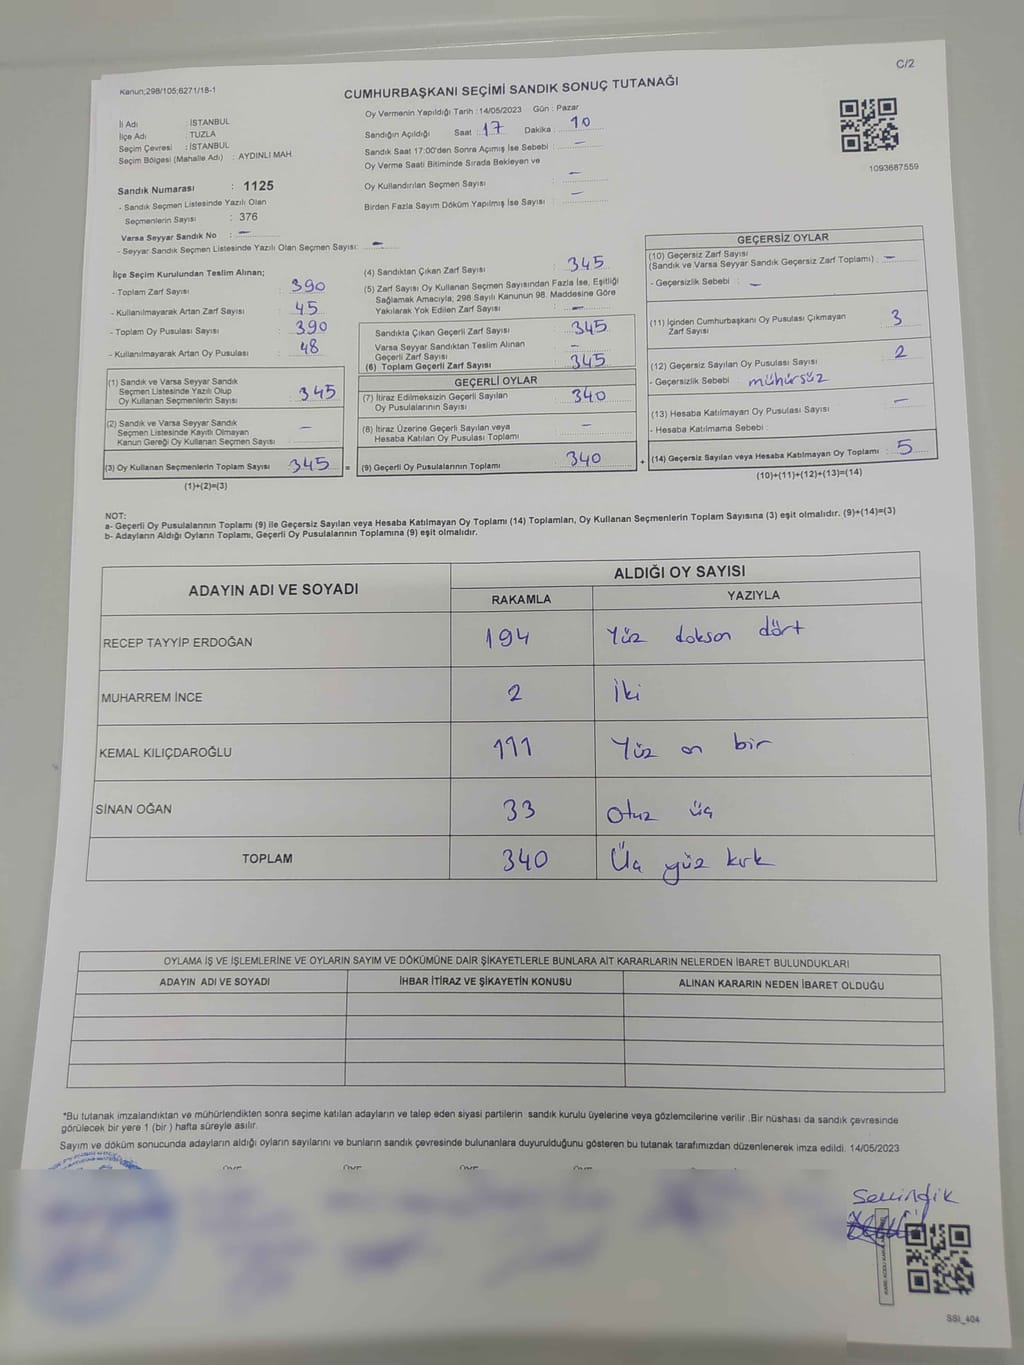 C/2
Kanun;298/105;6271/18-1
CUMHURBAŞKANI SEÇİMİ SANDIK SONUÇ TUTANAĞI
İl Adı : İSTANBUL
İlçe Adı : TUZLA
Seçim Çevresi : İSTANBUL
Seçim Bölgesi (Mahalle Adı) : AYDINLI MAH
Sandık Numarası : 1125
- Sandık Seçmen Listesinde Yazılı Olan
Seçmenlerin Sayısı : 376
Varsa Seyyar Sandık No : -
- Seyyar Sandık Seçmen Listesinde Yazılı Olan Seçmen Sayısı: -
Oy Vermenin Yapıldığı Tarih : 14/05/2023 Gün : Pazar
Sandığın Açıldığı Saat : 17 Dakika : 10
Sandık Saat 17:00'den Sonra Açılmış İse Sebebi : -
Oy Verme Saati Bitiminde Sırada Bekleyen ve
Oy Kullandırılan Seçmen Sayısı : -
Birden Fazla Sayım Döküm Yapılmış İse Sayısı : -
1093687559
İlçe Seçim Kurulundan Teslim Alınan;
- Toplam Zarf Sayısı : 390
- Kullanılmayarak Artan Zarf Sayısı : 45
- Toplam Oy Pusulası Sayısı : 390
- Kullanılmayarak Artan Oy Pusulası : 48
(1) Sandık ve Varsa Seyyar Sandık
Seçmen Listesinde Yazılı Olup
Oy Kullanan Seçmenlerin Sayısı : 345
(2) Sandık ve Varsa Seyyar Sandık
Seçmen Listesinde Kayıtlı Olmayan
Kanun Gereği Oy Kullanan Seçmen Sayısı : -
(3) Oy Kullanan Seçmenlerin Toplam Sayısı : 345 =
(1)+(2)=(3)
(4) Sandıktan Çıkan Zarf Sayısı : 345
(5) Zarf Sayısı Oy Kullanan Seçmen Sayısından Fazla İse, Eşitliği
Sağlamak Amacıyla; 298 Sayılı Kanunun 98. Maddesine Göre
Yakılarak Yok Edilen Zarf Sayısı : -
Sandıkta Çıkan Geçerli Zarf Sayısı : 345
Varsa Seyyar Sandıktan Teslim Alınan
Geçerli Zarf Sayısı : -
(6) Toplam Geçerli Zarf Sayısı : 345
GEÇERLİ OYLAR
(7) İtiraz Edilmeksizin Geçerli Sayılan
Oy Pusulalarının Sayısı : 340
(8) İtiraz Üzerine Geçerli Sayılan veya
Hesaba Katılan Oy Pusulası Toplamı : -
(9) Geçerli Oy Pusulalarının Toplamı : 340 +
GEÇERSİZ OYLAR
(10) Geçersiz Zarf Sayısı
(Sandık ve Varsa Seyyar Sandık Geçersiz Zarf Toplamı) : -
- Geçersizlik Sebebi : -
(11) İçinden Cumhurbaşkanı Oy Pusulası Çıkmayan
Zarf Sayısı : 3
(12) Geçersiz Sayılan Oy Pusulası Sayısı : 2
- Geçersizlik Sebebi : mühürsüz
(13) Hesaba Katılmayan Oy Pusulası Sayısı : -
- Hesaba Katılmama Sebebi :
(14) Geçersiz Sayılan veya Hesaba Katılmayan Oy Toplamı : 5
(10)+(11)+(12)+(13)=(14)
NOT:
a- Geçerli Oy Pusulalarının Toplamı (9) ile Geçersiz Sayılan veya Hesaba Katılmayan Oy Toplamı (14) Toplamları, Oy Kullanan Seçmenlerin Toplam Sayısına (3) eşit olmalıdır. (9)+(14)=(3)
b- Adayların Aldığı Oyların Toplamı, Geçerli Oy Pusulalarının Toplamına (9) eşit olmalıdır.
ADAYIN ADI VE SOYADI ALDIĞI OY SAYISI
RAKAMLA YAZIYLA
RECEP TAYYİP ERDOĞAN 194 Yüz doksan dört
MUHARREM İNCE 2 İki
KEMAL KILIÇDAROĞLU 111 Yüz on bir
SİNAN OĞAN 33 Otuz üç
TOPLAM 340 Üç yüz kırk
OYLAMA İŞ VE İŞLEMLERİNE VE OYLARIN SAYIM VE DÖKÜMÜNE DAİR ŞİKAYETLERLE BUNLARA AİT KARARLARIN NELERDEN İBARET BULUNDUKLARI
ADAYIN ADI VE SOYADI İHBAR İTİRAZ VE ŞİKAYETİN KONUSU ALINAN KARARIN NEDEN İBARET OLDUĞU
*Bu tutanak imzalandıktan ve mühürlendikten sonra seçime katılan adayların ve talep eden siyasi partilerin sandık kurulu üyelerine veya gözlemcilerine verilir .Bir nüshası da sandık çevresinde
görülecek bir yere 1 (bir ) hafta süreyle asılır.
Sayım ve döküm sonucunda adayların aldığı oyların sayılarını ve bunların sandık çevresinde bulunanlara duyurulduğunu gösteren bu tutanak tarafımızdan düzenlenerek imza edildi. 14/05/2023
SSI_404